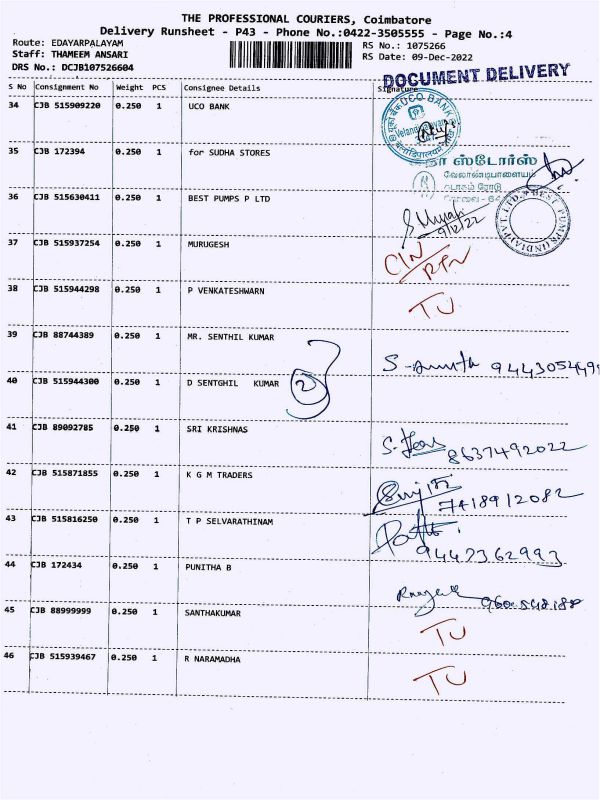 THE PROFESSIONAL COURIERS, Coimbatore
Delivery Runsheet - P43 - Phone No.:0422-3505555 - Page No.:4
Route: EDAYARPALAYAM
RS No.: 1075266
Staff: THAMEEM ANSARI
RS Date: 09-Dec-2022
DRS No.: DCJB107526604
DOCUMENT DELIVERY
S No Consignment No Weight PCS Consignee Details Signature
34 CJB 515909220 0.250 1 UCO BANK
UCO BANK
35 CJB 172394 0.250 1 for SUDHA STORES
ஸ்டோர்ஸ்
வேலாண்டிபாளையம்
ரோடு
36 CJB 515630411 0.250 1 BEST PUMPS P LTD
BEST PUMPS (INDIA) PVT. LTD.
9/12/22
37 CJB 515937254 0.250 1 MURUGESH
CIN
RTN
38 CJB 515944298 0.250 1 P VENKATESHWARN
TU
39 CJB 88744389 0.250 1 MR. SENTHIL KUMAR
40 CJB 515944300 0.250 1 D SENTGHIL KUMAR
2
41 CJB 89092785 0.250 1 SRI KRISHNAS
8637492022
42 CJB 515871855 0.250 1 K G M TRADERS
7418912082
43 CJB 515816250 0.250 1 T P SELVARATHINAM
9442362993
44 CJB 172434 0.250 1 PUNITHA B
45 CJB 88999999 0.250 1 SANTHAKUMAR
TU
46 CJB 515939467 0.250 1 R NARAMADHA
TU